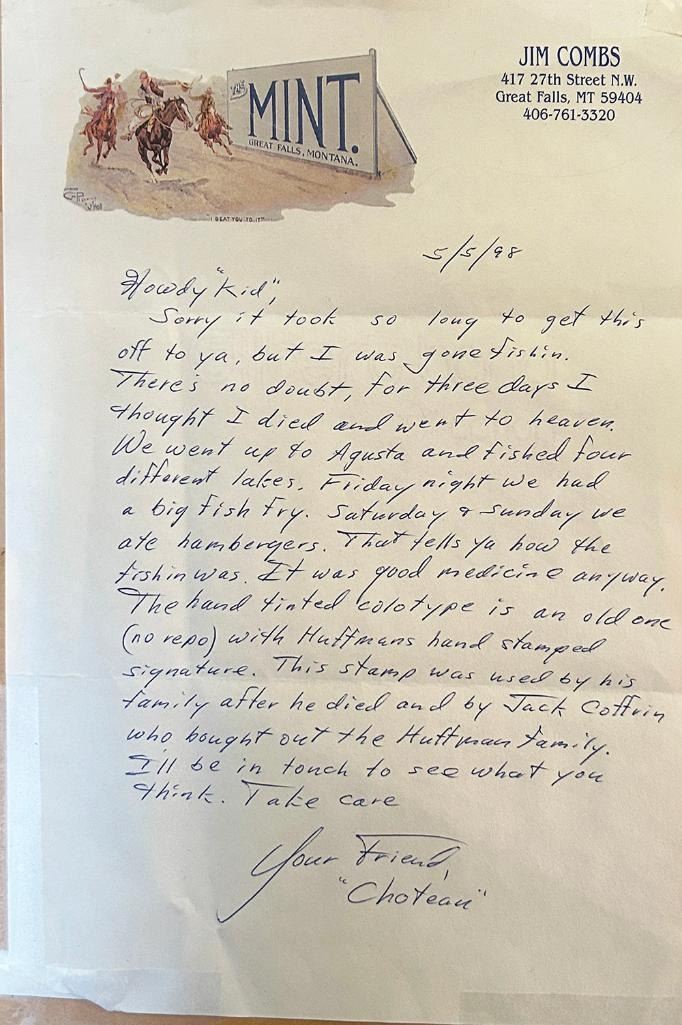 JIM COMBS
417 27th Street N.W.
Great Falls, MT 59404
406-761-3320
THE
MINT.
GREAT FALLS, MONTANA.
"I BEAT YOU TO IT"
5/5/98
Howdy "Kid",
Sorry it took so long to get this
off to ya, but I was gone fishin.
There's no doubt, for three days I
thought I died and went to heaven.
We went up to Agusta and fished four
different lakes. Friday night we had
a big fish fry. Saturday & Sunday we
ate hambergers. That tells ya how the
fishin was. It was good medicine anyway.
The hand tinted colotype is an old one
(no repo) with Huffmans hand stamped
signature. This stamp was used by his
family after he died and by Jack Coffrin
who bought out the Huffman family.
I'll be in touch to see what you
think. Take care
Your Friend,
"Choteau"